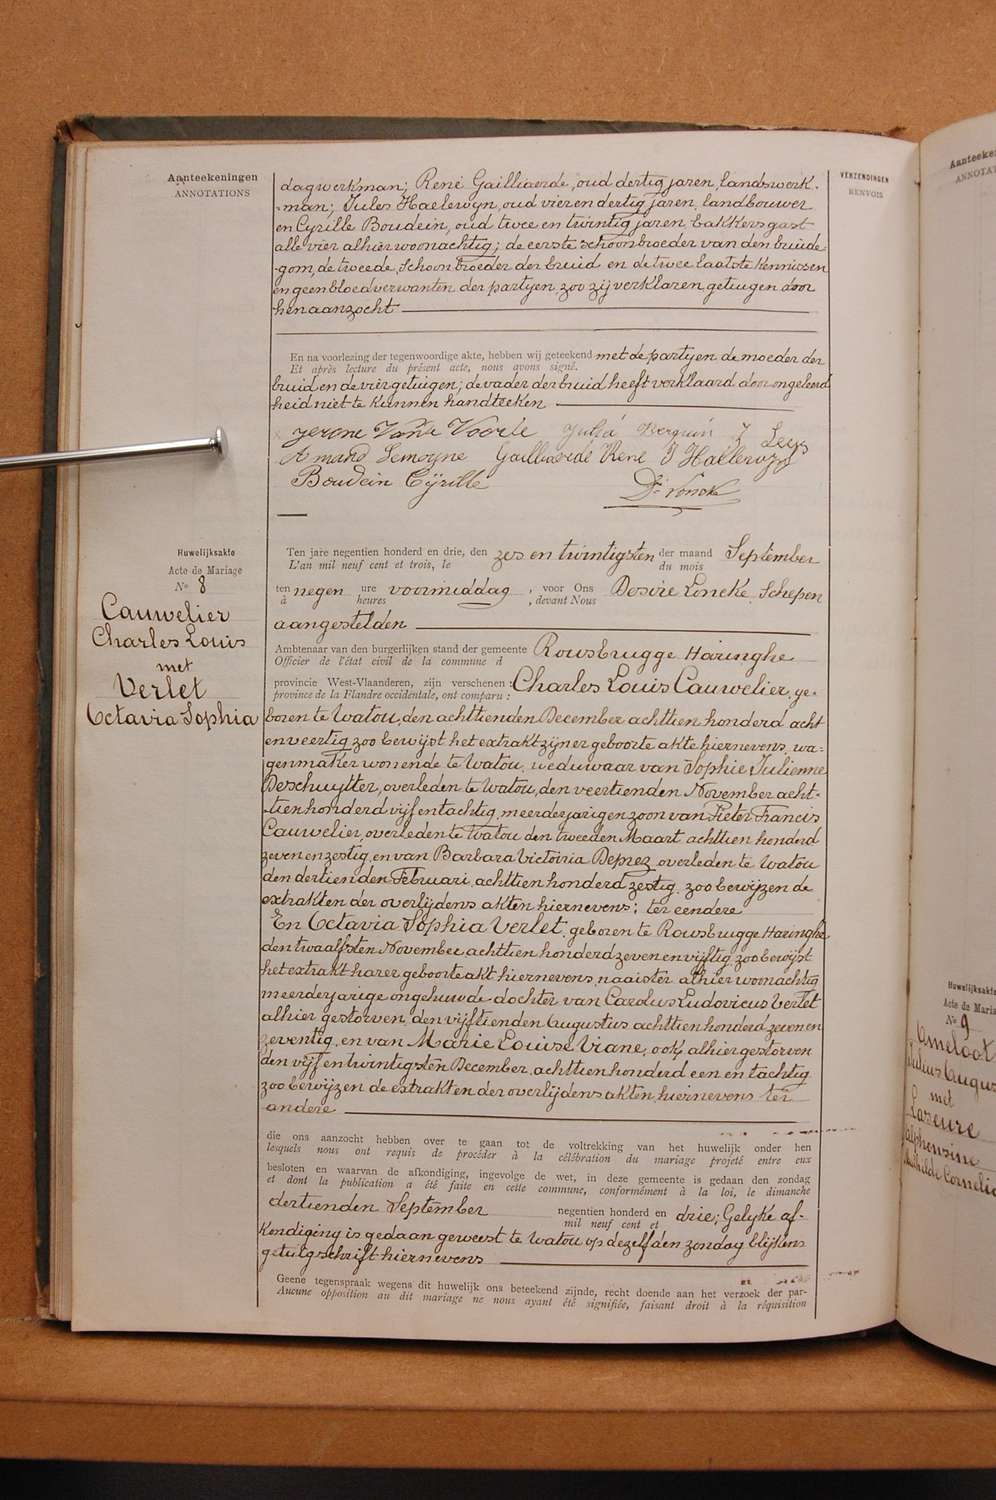 Aanteekeningen
ANNOTATIONS
VERZENDINGEN
RENVOIS
dagwerkman; René Gailliaerde, oud dertig jaren, landswerk-
-man; Jules Haelewyn, oud vier en dertig jaren, landbouwer
en Cyrille Boudein, oud twee en twintig jaren, bakkersgast
alle vier alhier woonachtig; de eerste schoonbroeder van den bruide-
-gom, de tweede, schoonbroeder der bruid en de twee laatste kennissen
en geen bloedverwanten der partyen, zoo zij verklaren getuigen door
hen aanzocht
En na voorlezing der tegenwoordige akte, hebben wij geteekend met de partyen de moeder der
Et après lecture du présent acte, nous avons signé.
bruid en de vier getuigen; de vader der bruid heeft verklaard door ongeleerd
heid niet te kunnen handteeken
Jerome Vande Voorle Julia Berquin J Leys
Armand Lemoyne Gailliaerde René J Hallewyn
Boudein Cÿrille Dre Loncke
Huwelijksakte
Acte de Mariage
No 8
Cauwelier
Charles Louis
met
Verlet
Octavia Sophia
Ten jare negentien honderd en drie, den zes en twintigsten der maand September
L'an mil neuf cent et trois, le du mois
ten negen ure voormiddag, voor Ons Desire Loncke, Schepen
à heures , devant Nous
aangestelden
Ambtenaar van den burgerlijken stand der gemeente Rousbrugge Haringhe
Officier de l'état civil de la commune d
provincie West-Vlaanderen, zijn verschenen: Charles Louis Cauwelier, ge-
province de la Flandre occidentale, ont comparu:
boren te Watou, den achttienden December achttien honderd acht
en veertig, zoo bewijst het extrakt zijner geboorte akte hiernevens, wa-
genmaker wonende te Watou, weduwaar van Sophie Julienne
Deschuytter, overleden te Watou, den veertienden November acht-
-tien honderd vijf en tachtig, meerderjarigen zoon van Pieter Francis
Cauwelier, overleden te Watou den tweeden Maart achttien honderd
zeven en zestig, en van Barbara Victoiria Deprez overleden te Watou
den dertienden Februari achttien honderd zestig, zoo bewijzen de
extrakten der overlijdens akten hiernevens; ter eendere
En Octavia Sophia Verlet, geboren te Rousbrugge Haringhe
den twaalfsten November achttien honderd zeven en vijftig, zoo bewijst
het extrakt harer geboorte akt hiernevens, naaister alhier woonachtig
meerderjarige ongehuwde dochter van Carolus Ludovicus Verlet
alhier gestorven, den vijftienden Augustus achttien honderd zeven en
zeventig, en van Marie Louise Viane, ook alhier gestorven
den vijf en twintigsten December achttien honderd een en tachtig
zoo bewijzen de extrakten der overlijdens akten, hiernevens ter
andere
die ons aanzocht hebben over te gaan tot de voltrekking van het huwelijk onder hen
lesquels nous ont requis de procéder à la célébration du mariage projeté entre eux
besloten en waarvan de afkondiging, ingevolge de wet, in deze gemeente is gedaan den zondag
et dont la publication a été faite en cette commune, conformément à la loi, le dimanche
dertienden September negentien honderd en drie; Gelyke af-
mil neuf cent et
kondiging is gedaan geweest te Watou op dezelfden zondag blijkens
getuigschrift hiernevens
Geene tegenspraak wegens dit huwelijk ons beteekend zijnde, recht doende aan het verzoek der par-
Aucune opposition au dit mariage ne nous ayant été signifiée, faisant droit à la réquisition
Huwelijksakte
Acte de Maria
No 9
Ameloot
met
Lazeure
Alphonsine